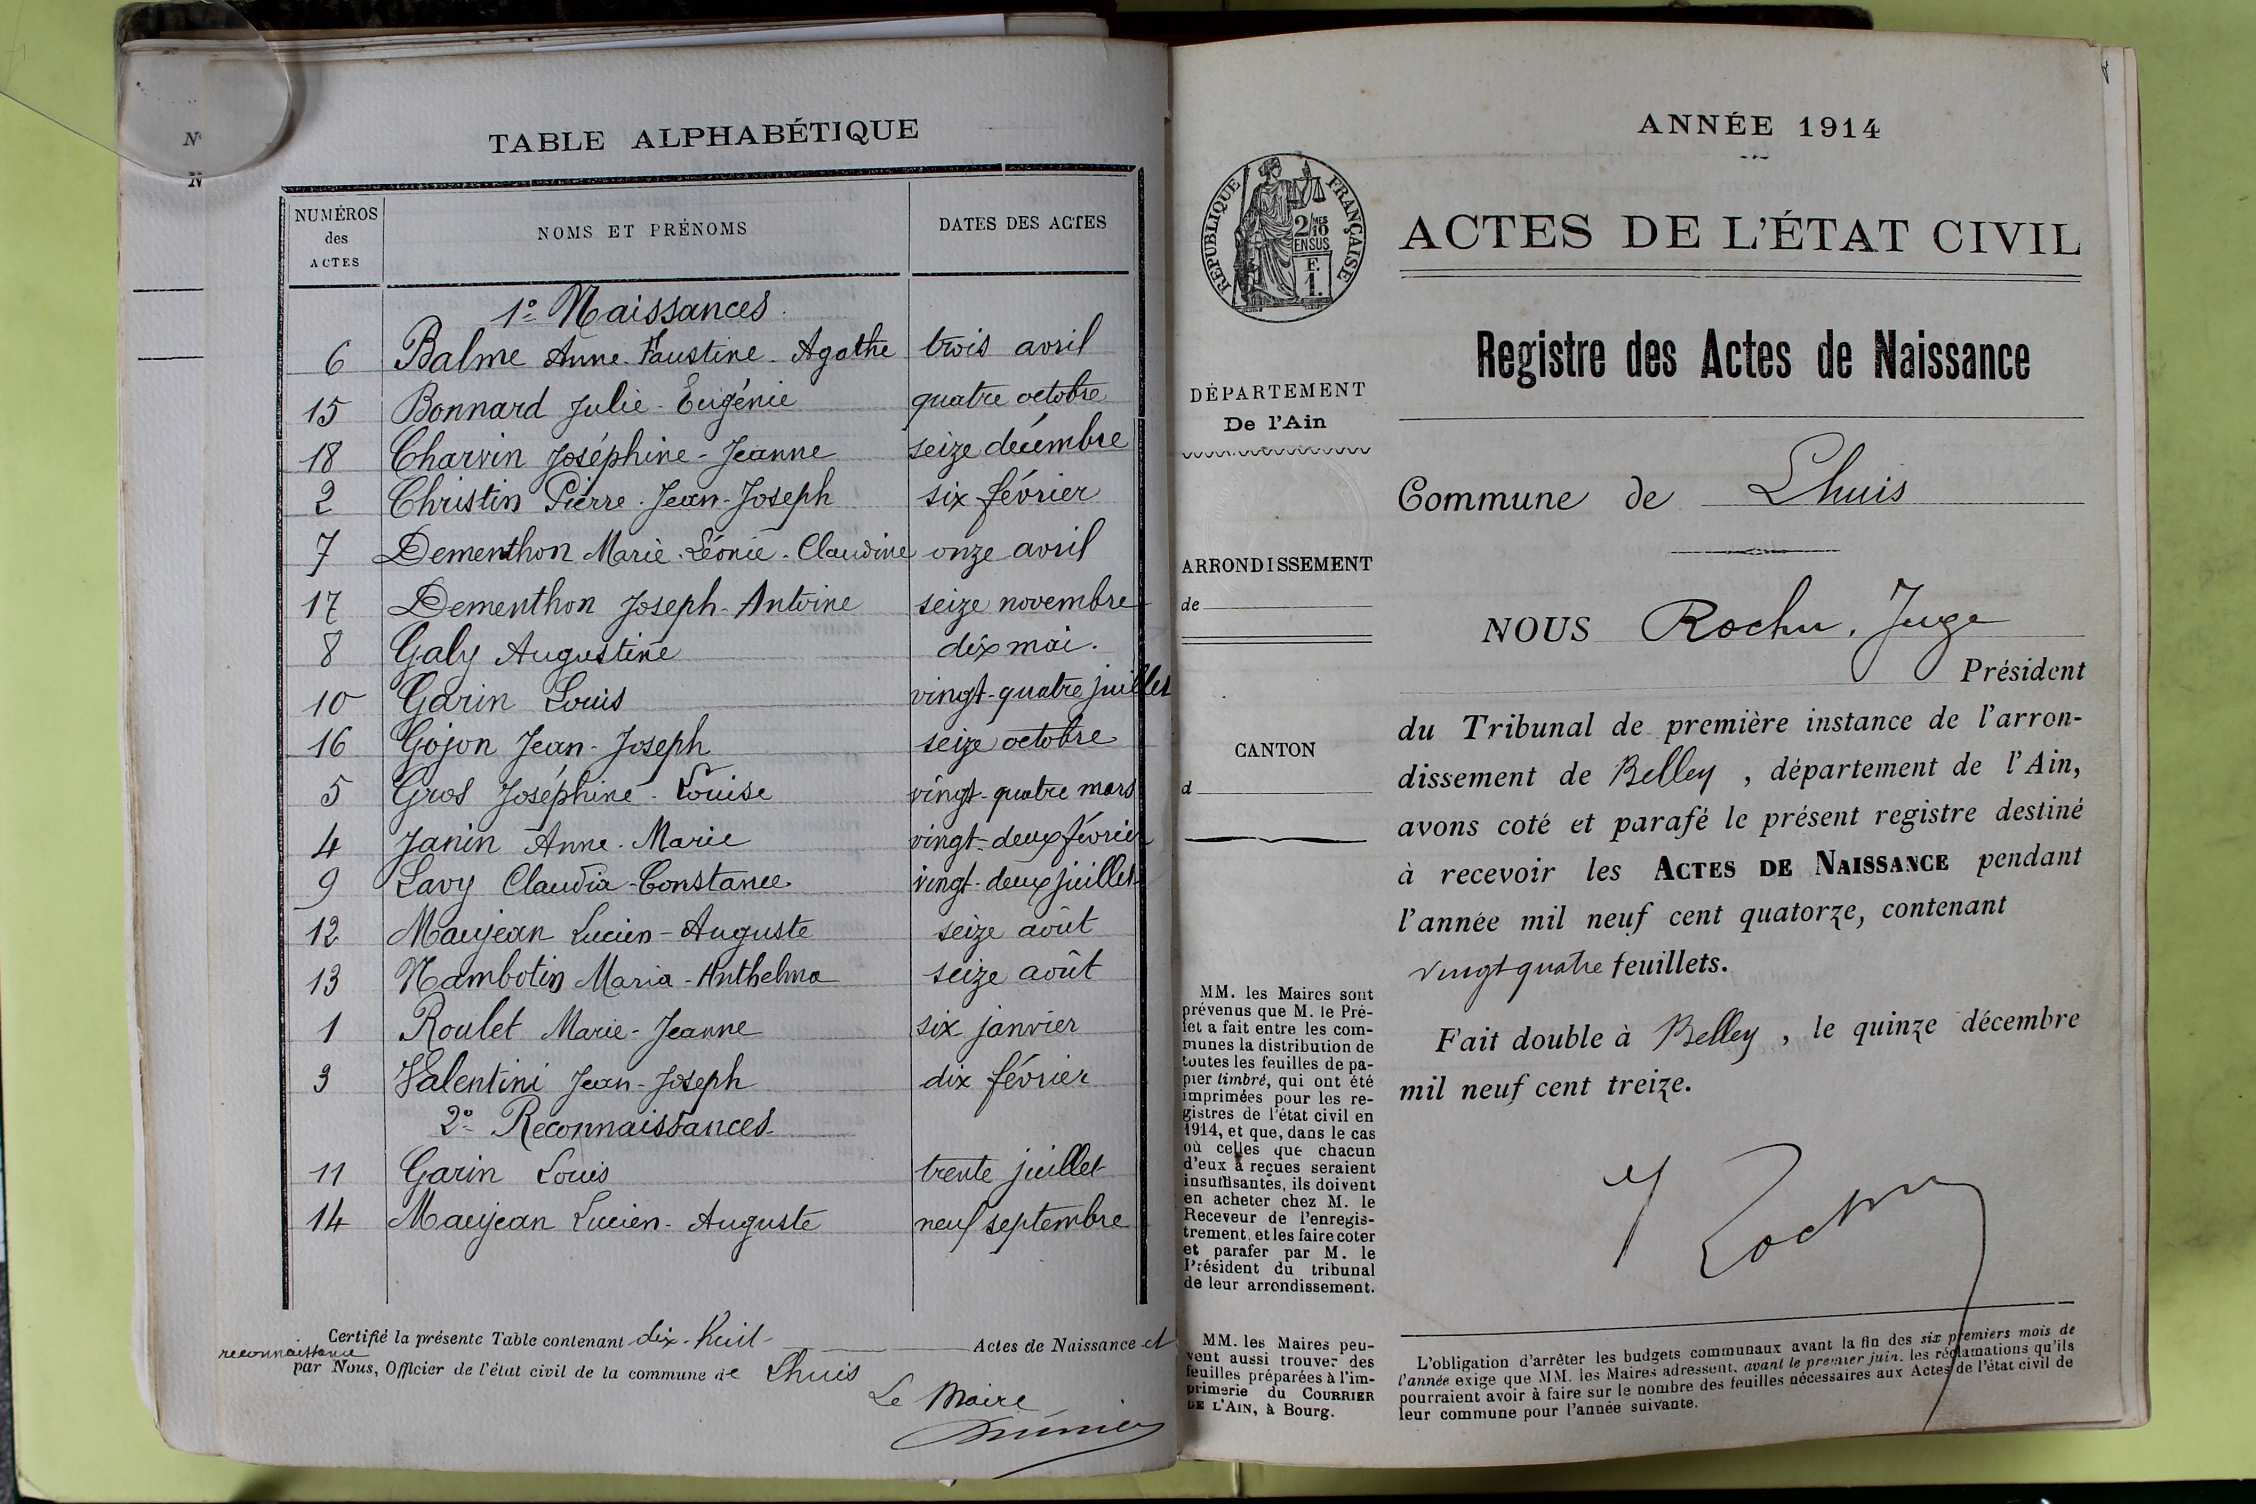 TABLE ALPHABÉTIQUE
NUMÉROS des ACTES NOMS ET PRÉNOMS DATES DES ACTES
1° Naissances
6 Balme Anne-Faustine-Agathe trois avril
15 Bonnard Julie-Eugénie quatre octobre
18 Charvin Joséphine-Jeanne seize décembre
2 Christin Pierre-Jean-Joseph six février
7 Dementhon Marie-Léonie-Claudine onze avril
17 Dementhon Joseph-Antoine seize novembre
8 Galy Augustine dix mai.
10 Garin Louis vingt-quatre juillet
16 Gojon Jean-Joseph seize octobre
5 Gros Joséphine-Louise vingt-quatre mars
4 Janin Anne-Marie vingt-deux février
9 Lavy Claudia-Constance vingt-deux juillet
12 Maujean Lucien-Auguste seize août
13 Nambotin Maria-Anthelma seize août
1 Roulet Marie-Jeanne six janvier
3 Valentini Jean-Joseph dix février
2° Reconnaissances
11 Garin Louis trente juillet
14 Maujean Lucien-Auguste neuf septembre
Certifié la présente Table contenant dix-huit Actes de Naissance et
reconnaissance
par Nous, Officier de l'état civil de la commune de Lhuis
Le Maire
ANNÉE 1914
RÉPUBLIQUE FRANÇAISE
2/10 MES
EN SUS
F.
1.
ACTES DE L'ÉTAT CIVIL
Registre des Actes de Naissance
DÉPARTEMENT
De l'Ain
Commune de Lhuis
ARRONDISSEMENT
de
NOUS Rochu, Juge
Président
du Tribunal de première instance de l'arron-
CANTON
d
dissement de Belley, département de l'Ain,
avons coté et parafé le présent registre destiné
à recevoir les ACTES DE NAISSANCE pendant
l'année mil neuf cent quatorze, contenant
vingt quatre feuillets.
Fait double à Belley, le quinze décembre
mil neuf cent treize.
Rochu
MM. les Maires sont
prévenus que M. le Pré-
fet a fait entre les com-
munes la distribution de
toutes les feuilles de pa-
pier timbré, qui ont été
imprimées pour les re-
gistres de l'état civil en
1914, et que, dans le cas
où celles que chacun
d'eux a reçues seraient
insuffisantes, ils doivent
en acheter chez M. le
Receveur de l'enregis-
trement, et les faire coter
et parafer par M. le
Président du tribunal
de leur arrondissement.
MM. les Maires peu-
vent aussi trouver des
feuilles préparées à l'im-
primerie du COURRIER
DE L'AIN, à Bourg.
L'obligation d'arrêter les budgets communaux avant la fin des six premiers mois de
l'année exige que MM. les Maires adressent, avant le premier juin, les réclamations qu'ils
pourraient avoir à faire sur le nombre des feuilles nécessaires aux Actes de l'état civil de
leur commune pour l'année suivante.